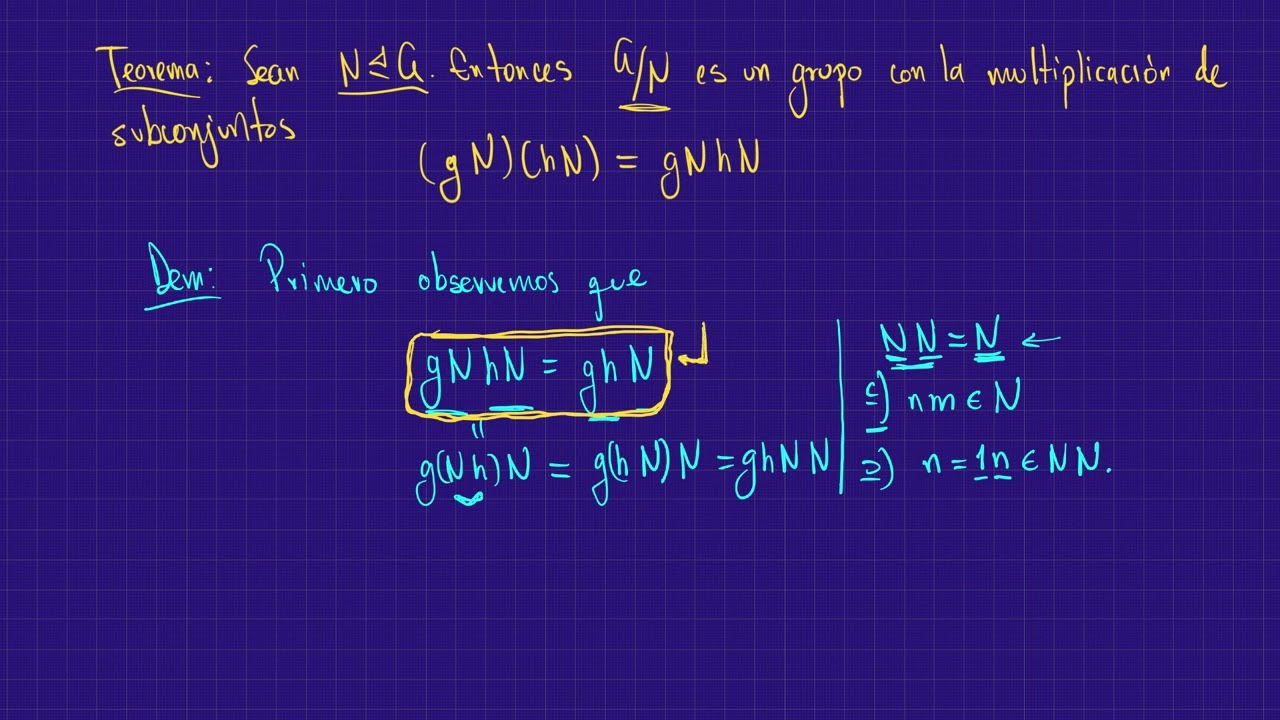 Teorema: Sean N ⊴ G. Entonces G/N es un grupo con la multiplicación de
subconjuntos
(gN)(hN) = gNhN
Dem: Primero observemos que
gNhN = ghN
"
g(Nh)N = g(hN)N = ghNN
NN = N ←
⊆) nm ∈ N
⊇) n = 1n ∈ NN.